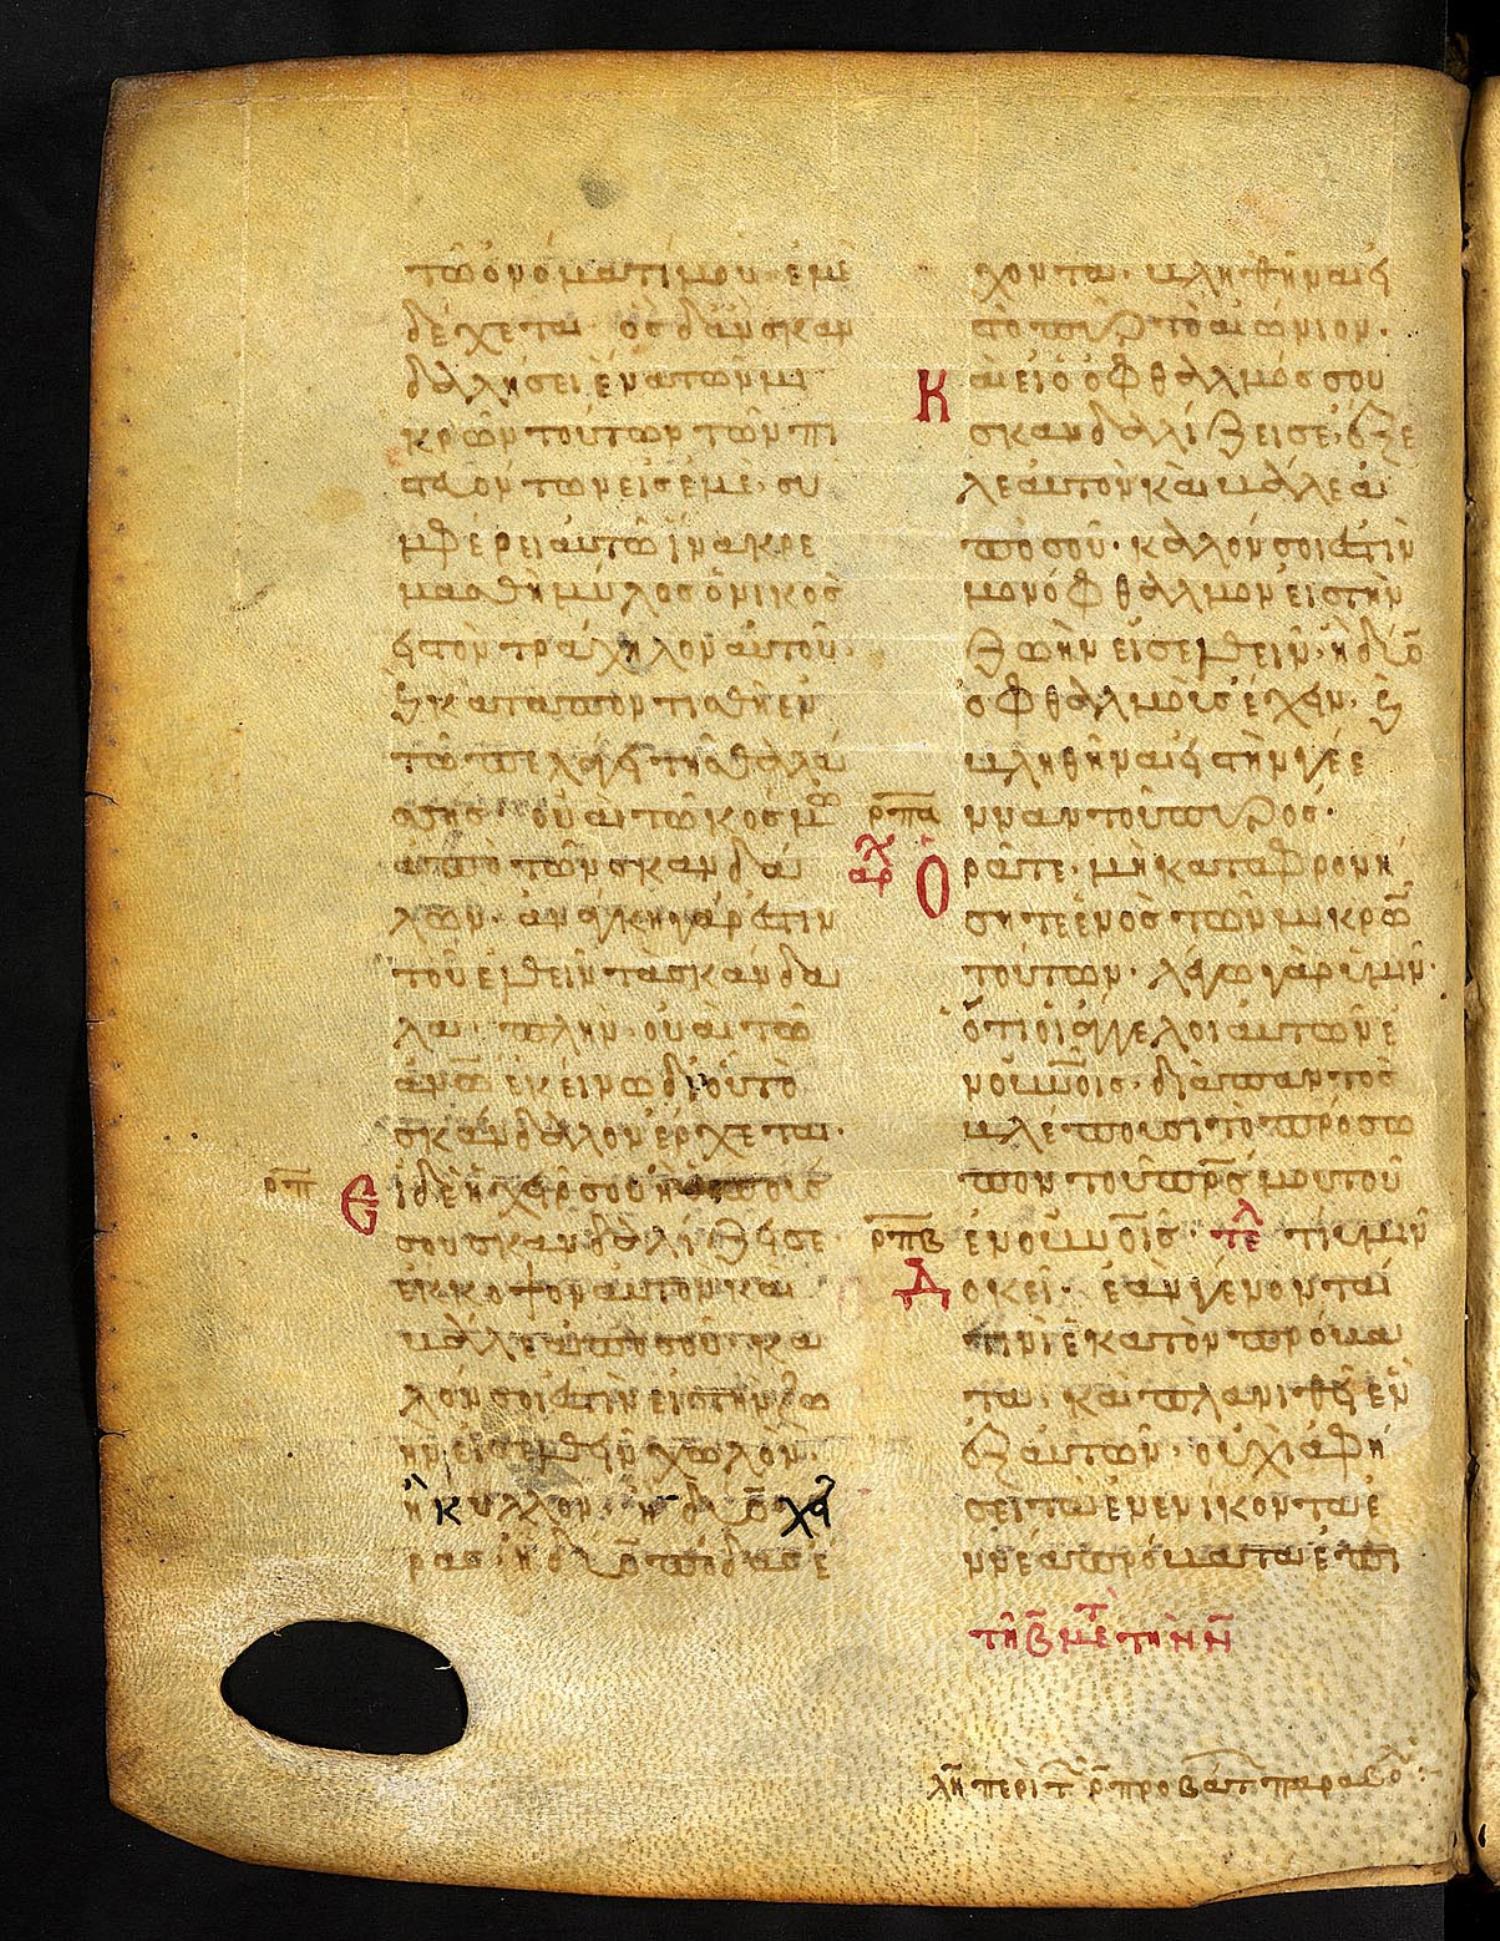 τῶ ὀνόματί μου ἐμὲ
δέχεται ὃς δ' ἂν σκαν
δαλλήσει ἕνα τῶν μι
κρῶν τούτων τῶν πι
στευόντων εἰς ἐμὲ· συ
μφέρει αὐτῶ ἵνα κρε
μασθῆ μύλος ὀνικὸς
εἰς τὸν τράχηλον αὐτοῦ·
καὶ καταποντισθῆ ἐν
τῶ πελάγει τῆς θαλά
σσης· οὐαὶ τῶ κόσμω
ἀπὸ τῶν σκανδά
λων· ἀνάγκη γάρ ἐστιν
τοῦ ἐλθεῖν τὰ σκάνδα
λα· πλὴν οὐαὶ τῶ
ἀνω̅ ἐκείνω δι' οὗ τὸ
σκάνδαλλον ἔρχεται·
ρπ Εἰ δὲ ἡ χείρ σου ἢ ὁ ποῦς
σου σκανδαλίζει σε
ἔκκοψον αὐτὸν καὶ
βάλε ἀπὸ σοῦ· κα
λόν σοι ἐστὶν εἰς τὴν ζω
ὴν εἰσελθεῖν χωλὸν·
ἢ κυλλὸν· ἢ δύο χεῖ
ρας· ἢ δύο πόδας ἔ
χοντα· βληθῆναι εἰς
τὸ πῦρ τὸ αἰώνιον·
Κ αὶ εἰ ὁ ὀφθαλμός σου
σκανδαλίζει σε· ἔξε
λε αὐτὸν καὶ βάλε ἀ
πὸ σοῦ· καλόν σοι ἐστὶν
μονόφθαλμον εἰς τὴν
ζωὴν εἰσελθεῖν· ἢ δύο
ὀφθαλμοὺς ἔχειν· καὶ
βληθῆναι εἰς τὴν γέε
ρπα ννα̣ν τοῦ πυρός·
αρχ Ο ρᾶτε· μὴ καταφρονή
σητε ἑνὸς τῶν μικρῶ̅
τούτων· λέγω γὰρ ὑμῖν·
ὅτι οἱ ἄγγελοι αὐτῶν ἐ
ν οὐ̅νοῖς· διὰ παντὸς
βλέπουσι τὸ πρόσω
πον τοῦ πρ̅ς μου τοῦ
ρπβ ἐν οὐ̅νοῖς· τελ τί ὑμῖν
Δ οκεῖ· ἐὰν γένονταί
τινι ἑκατὸν πρόβα
τα· καὶ πλανιθῆ ἓν
ἐξ αὐτῶν· οὐχὶ ἀφή
σει τὰ ἐνενίκοντα ἐ
ννέα πρόβατα ἐπὶ
τῆ β̅ μετ τὴν ν̅
λη̅ περὶ τ̅ ρ̅ προβάτ παραβο :-